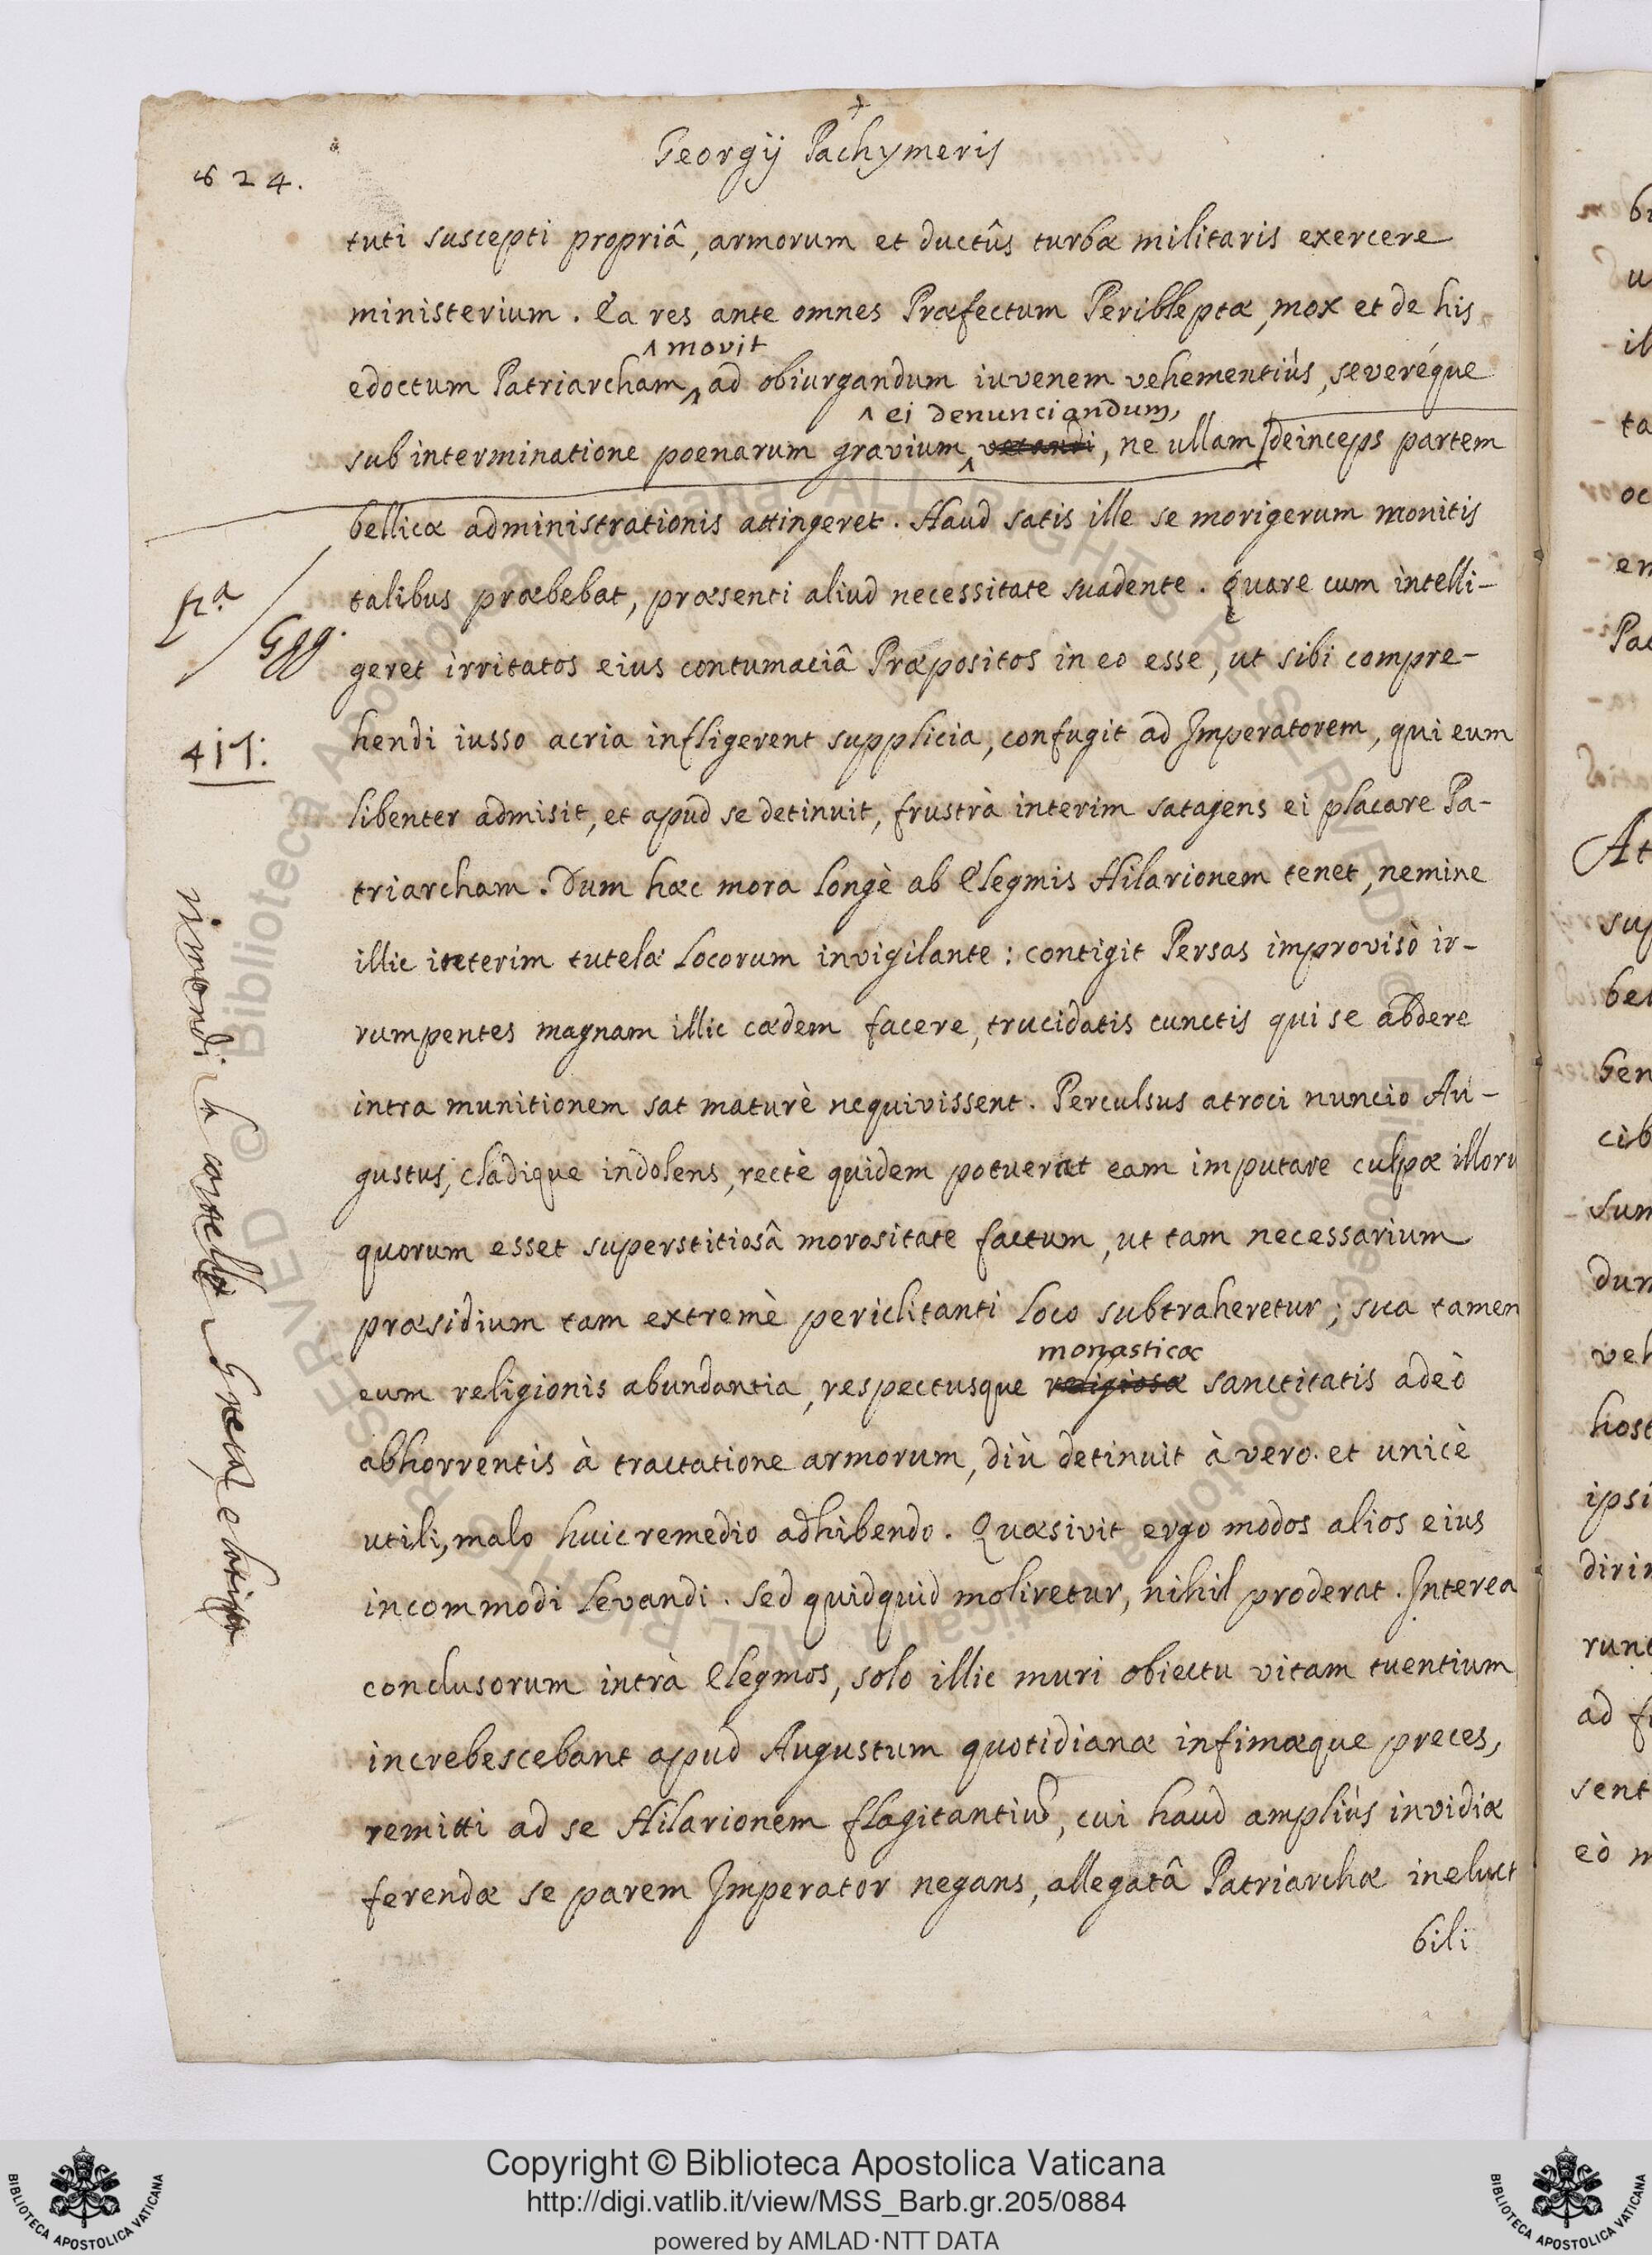 624.
Georgij Pachymeris
tuti suscepti propriâ, armorum et ductûs turbæ militaris exercere
ministerium. Ea res ante omnes Præfectum Peribleptæ, mox et de his
^ movit
edoctum Patriarcham^ ad obiurgandum iuvenem vehementiùs, severéque
^ ei denunciandum,
sub interminatione poenarum gravium^ vetandi, ne ullam [deinceps partem
bellicæ administrationis attingeret. Haud satis ille se morigerum monitis
talibus præbebat, præsenti aliud necessitate suadente. Quare cum intelli-
geret irritatos eius contumaciâ Præpositos in eo esse, ut sibi compre-
hendi iusso acria infligerent supplicia, confugit ad Imperatorem, qui eum
libenter admisit, et apud se detinuit, frustrà interim satagens ei placare Pa-
triarcham. Dum hæc mora longè ab Elegmis Hilarionem tenet, nemine
illic interim tutelæ Locorum invigilante: contigit Persas improvisò ir-
rumpentes magnam illic cædem facere, trucidatis cunctis qui se abdere
intra munitionem sat maturè nequivissent. Perculsus atroci nuncio Au-
gustus, cladique indolens, rectè quidem potuerat eam imputare culpæ illorū
quorum esset superstitiosâ morositate factum, ut tam necessarium
præsidium tam extremè periclitanti loco subtraheretur; sua tamen
monasticæ
eum religionis abundantia, respectusque religiosæ sanctitatis adeò
abhorrentis à tractatione armorum, diù detinuit à vero et unicè
utili, malo huic remedio adhibendo. Quæsivit ergo modos alios eius
incommodi levandi. Sed quidquid moliretur, nihil proderat. Interea
conclusorum intrà Elegmos, solo illic muri obiectu vitam tuentium
increbescebant apud Augustum quotidianæ infimæque preces,
remitti ad se Hilarionem flagitantiū, cui haud ampliùs invidiæ
ferendæ se parem Imperator negans, allegatâ Patriarchæ ineluct
bili
Ggg.
417:
Copyright © Biblioteca Apostolica Vaticana
http://digi.vatlib.it/view/MSS_Barb.gr.205/0884
powered by AMLAD·NTT DATA
BIBLIOTECA APOSTOLICA VATICANA
BIBLIOTECA APOSTOLICA VATICANA